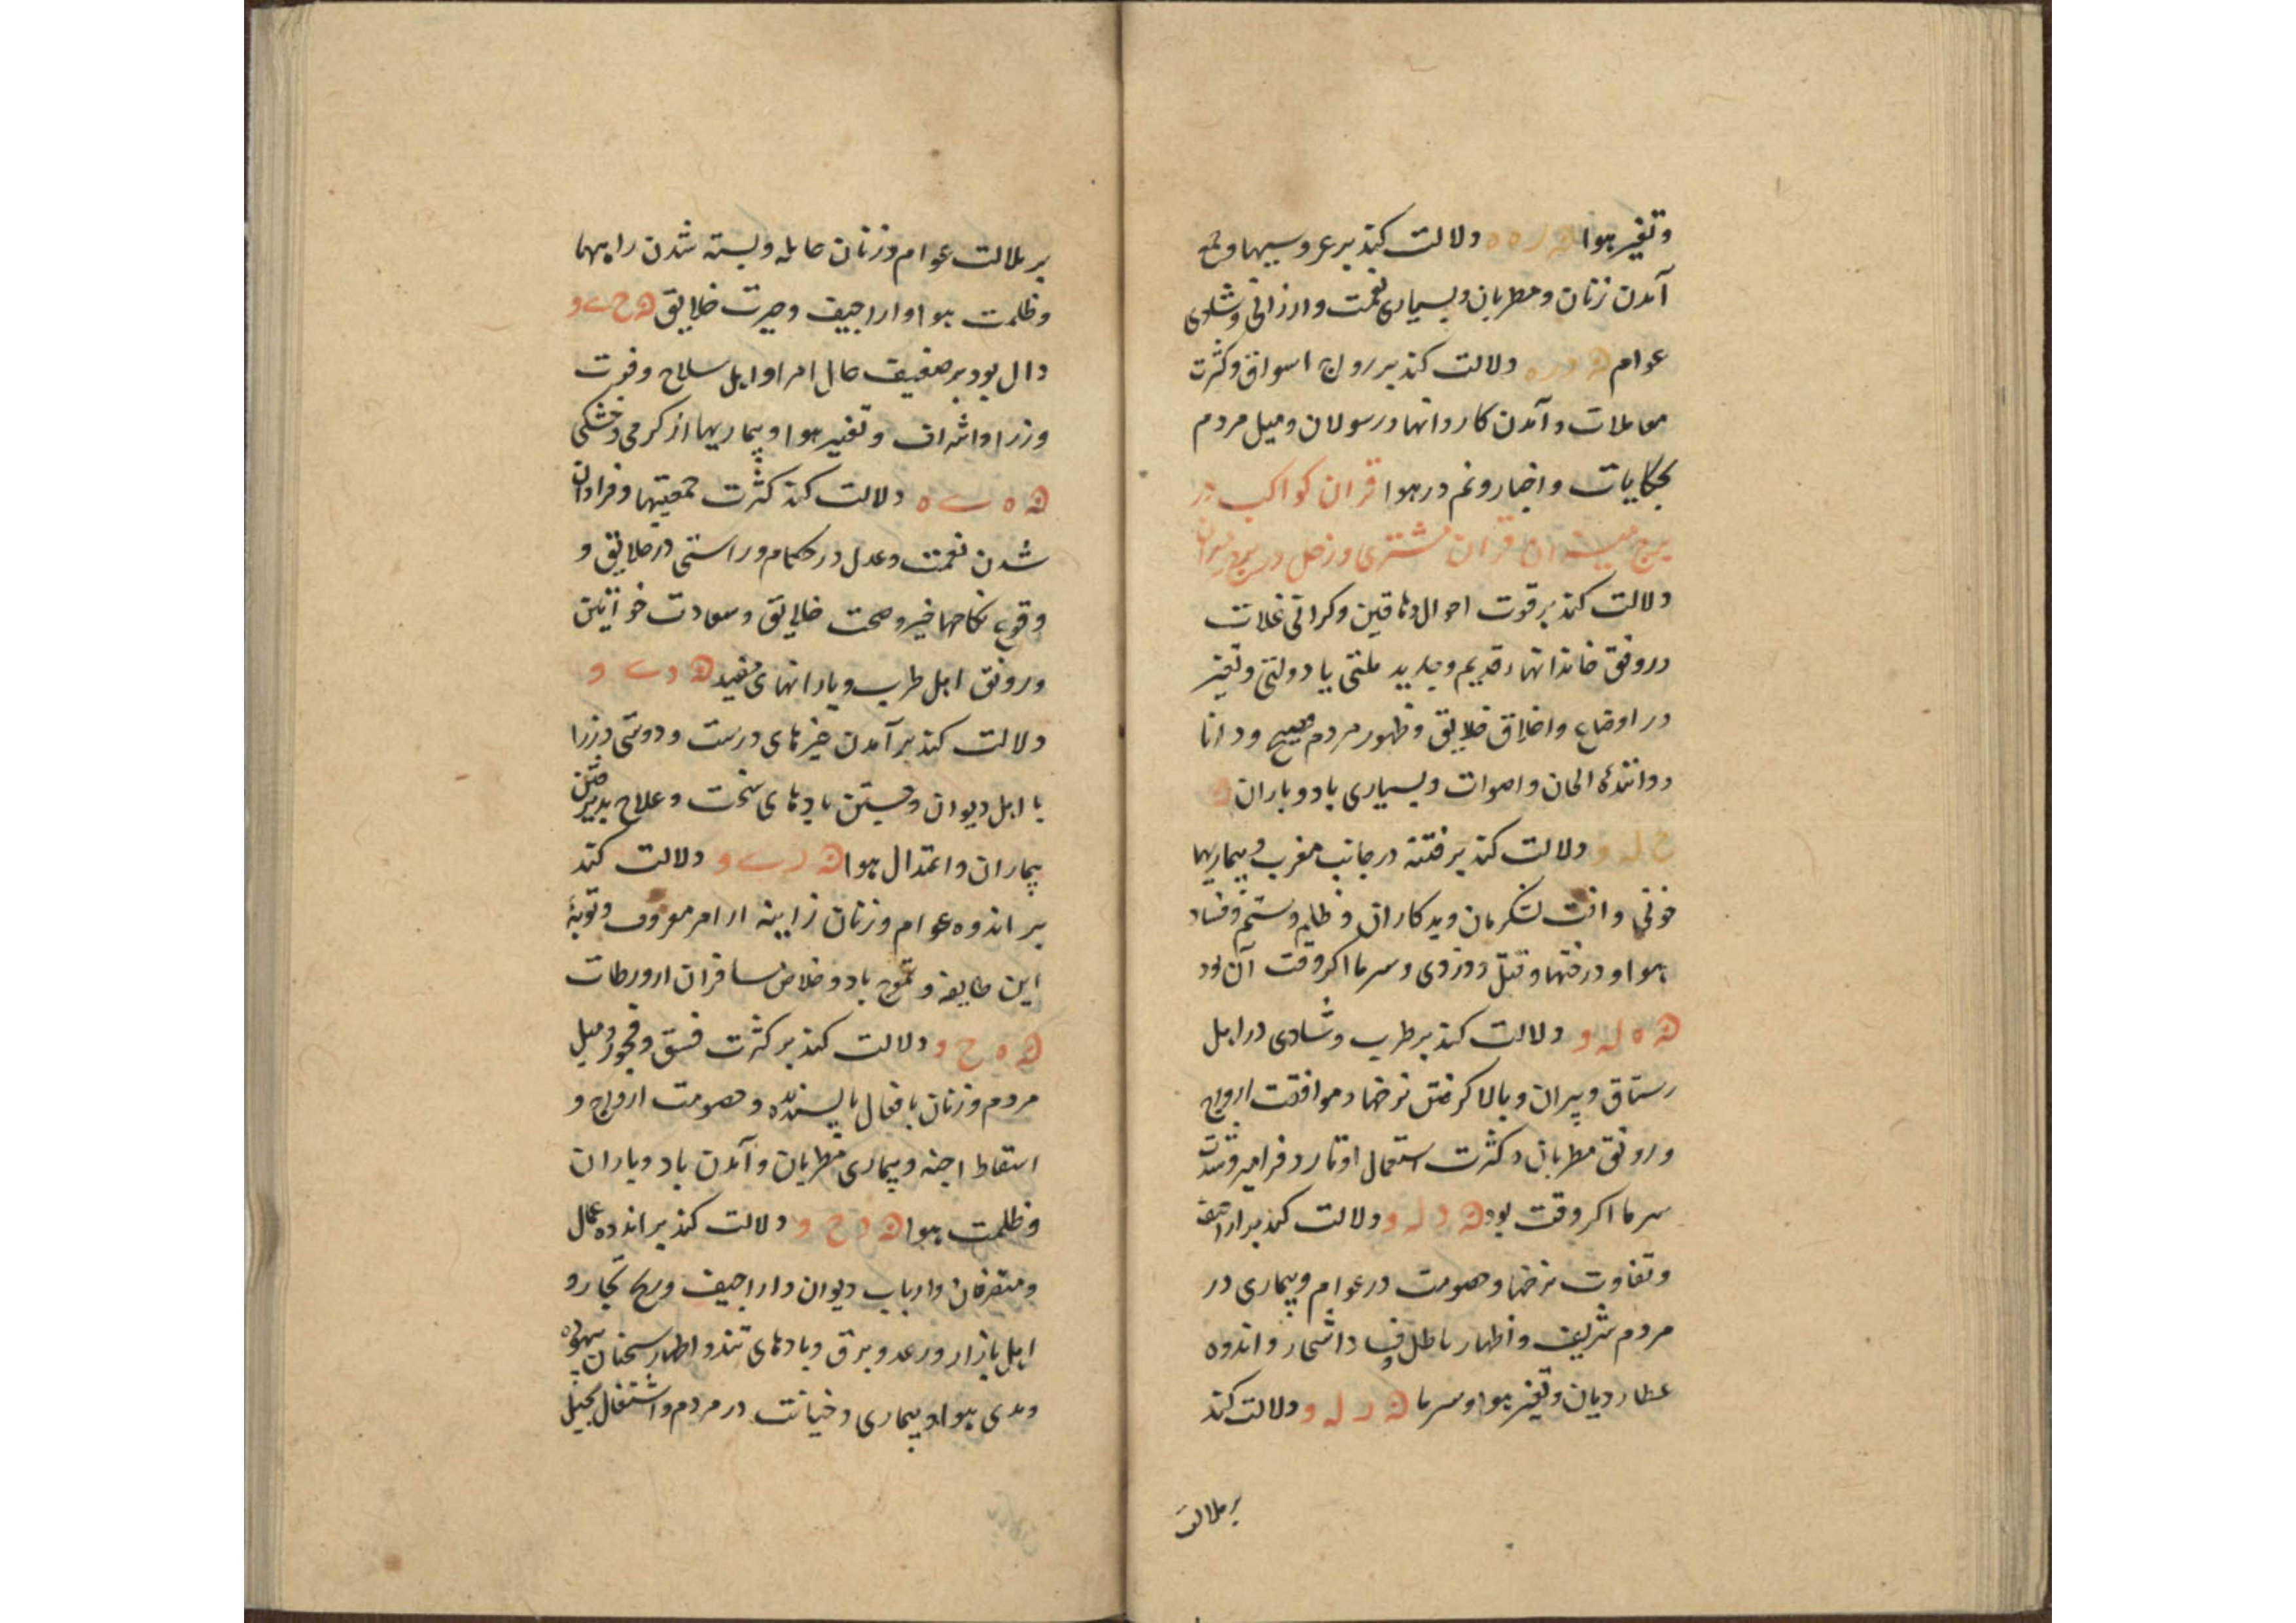 وتغیر هوا ݝ ر ه ه دلالت کند بر عروسیها و
آمدن زنان و مطربان و بسیاری نعمت و ارزانی و شادی
عوام دلالت کند بر رواج اسواق و کثرت
معاملات و آمدن کاروانها و رسولان و میل مردم
بحکایات و اخبار و نم در هوا قران کواکب در
برج میزان قران مشتری و زحل در برج میزان
دلالت کند بر قوت احوال دهاقین و کرانی غلات
و رونق خاندانهاء قدیم و ملتی یا دولتی و تغیر
در اوضاع و اخلاق خلایق و ظهور مردم فصیح و دانا
و دانندۀ الحان و اصوات و بسیاری باد و باران
ح له و دلالت کند بر فتنه در جانب مغرب و بیماریها
خونی و آفت لشکریان و بدکاران و ظلم و ستم و فساد
هوا و درختها و قتل و دزدی و سرما اکر وقت آن بود
ه له و دلالت کند بر طرب و شادی در اهل
رستاق و پیران و بالا کرفتن نرخها و موافقت ازواج
و رونق مطربان و کثرت استعمال اوتار و مزامیر و شدت
سرما اکر وقت بود د له و دلالت کند بر اراجیف
و تفاوت نرخها و خصومت در عوام و بیماری در
مردم شریف و اظهار باطل و فساد اشجار و اندوه
عطاردیان و تغیر هوا و سرما ر له و دلالت کند
بر ملالت
بر ملالت عوام و زنان حامله و بسته شدن راهها
و ظلمت هوا و اراجیف و حیرت خلایق ح ی و
دال بود بر ضعیف حال امرا و اهل سلاح و فوت
وزرا و اشراف و تغییر هوا و بیماریها از کرمی و خشکی
ه ی ه دلالت کند کثرت جمعیتها و فراوان
شدن نعمت و عدل در حکام و راستی در خلایق و
وقوع نکاحها خیر و صحت خلایق و سعادت خواتین
و رونق اهل طرب و بارانهای مفید د ی و
دلالت کند بر آمدن خبرهای درست و دوستی وزرا
با اهل دیوان و جستن بادهای سخت و علاج پذیرفتن
بیماران و اعتدال هوا ر ی و دلالت کند
بر اندوه عوام و زنان زانیه از امر معروف و توبۀ
این طایفه و تموج باد و خلاص مسافران از ورطات
ه ح و دلالت کند بر کثرت فسق و فجور و میل
مردم و زنان بافعال ناپسندیده و خصومت ازواج و
اسقاط اجنه و بیماری مطربان و آمدن باد و باران
و ظلمت هوا د ح و دلالت کند بر اندوه عمال
و متصرفان و ارباب دیوان و اراجیف و تجار و
اهل بازار و رعد و برق و بادهای تند و اظهار سخنان بیهوده
و بدی هوا و بیماری و خیانت در مردم و اشتغال بحیل